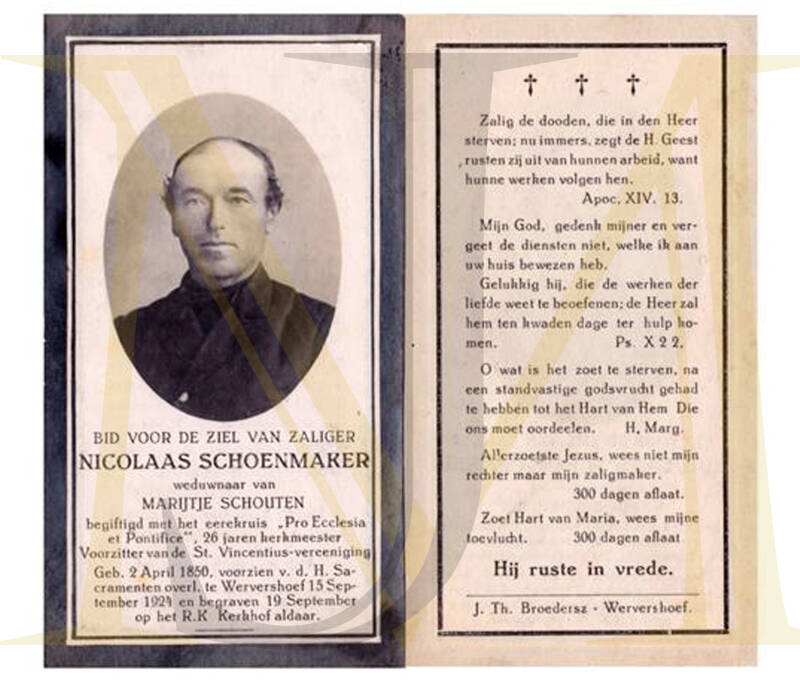 BID VOOR DE ZIEL VAN ZALIGER
NICOLAAS SCHOENMAKER
weduwnaar van
MARIJTJE SCHOUTEN
begiftigd met het eerekruis „Pro Ecclesia
et Pontifice“, 26 jaren kerkmeester
Voorzitter van de St. Vincentius-vereeniging
Geb. 2 April 1850, voorzien v. d. H. Sa-
cramenten overl. te Wervershoef 15 Sep-
tember 1924 en begraven 19 September
op het R.K Kerkhof aldaar.
† † †
Zalig de dooden, die in den Heer
sterven; nu immers, zegt de H. Geest
rusten zij uit van hunnen arbeid, want
hunne werken volgen hen.
Apoc. XIV. 13.
Mijn God, gedenk mijner en ver-
geet de diensten niet, welke ik aan
uw huis bewezen heb.
Gelukkig hij, die de werken der
liefde weet te beoefenen; de Heer zal
hem ten kwaden dage ter hulp ko-
men. Ps. X 2 2.
O wat is het zoet te sterven, na
een standvastige godsvrucht gehad
te hebben tot het Hart van Hem Die
ons moet oordeelen. H. Marg.
Allerzoetste Jezus, wees niet mijn
rechter maar mijn zaligmaker.
300 dagen aflaat.
Zoet Hart van Maria, wees mijne
toevlucht. 300 dagen aflaat
Hij ruste in vrede.
J. Th. Broedersz - Wervershoef.